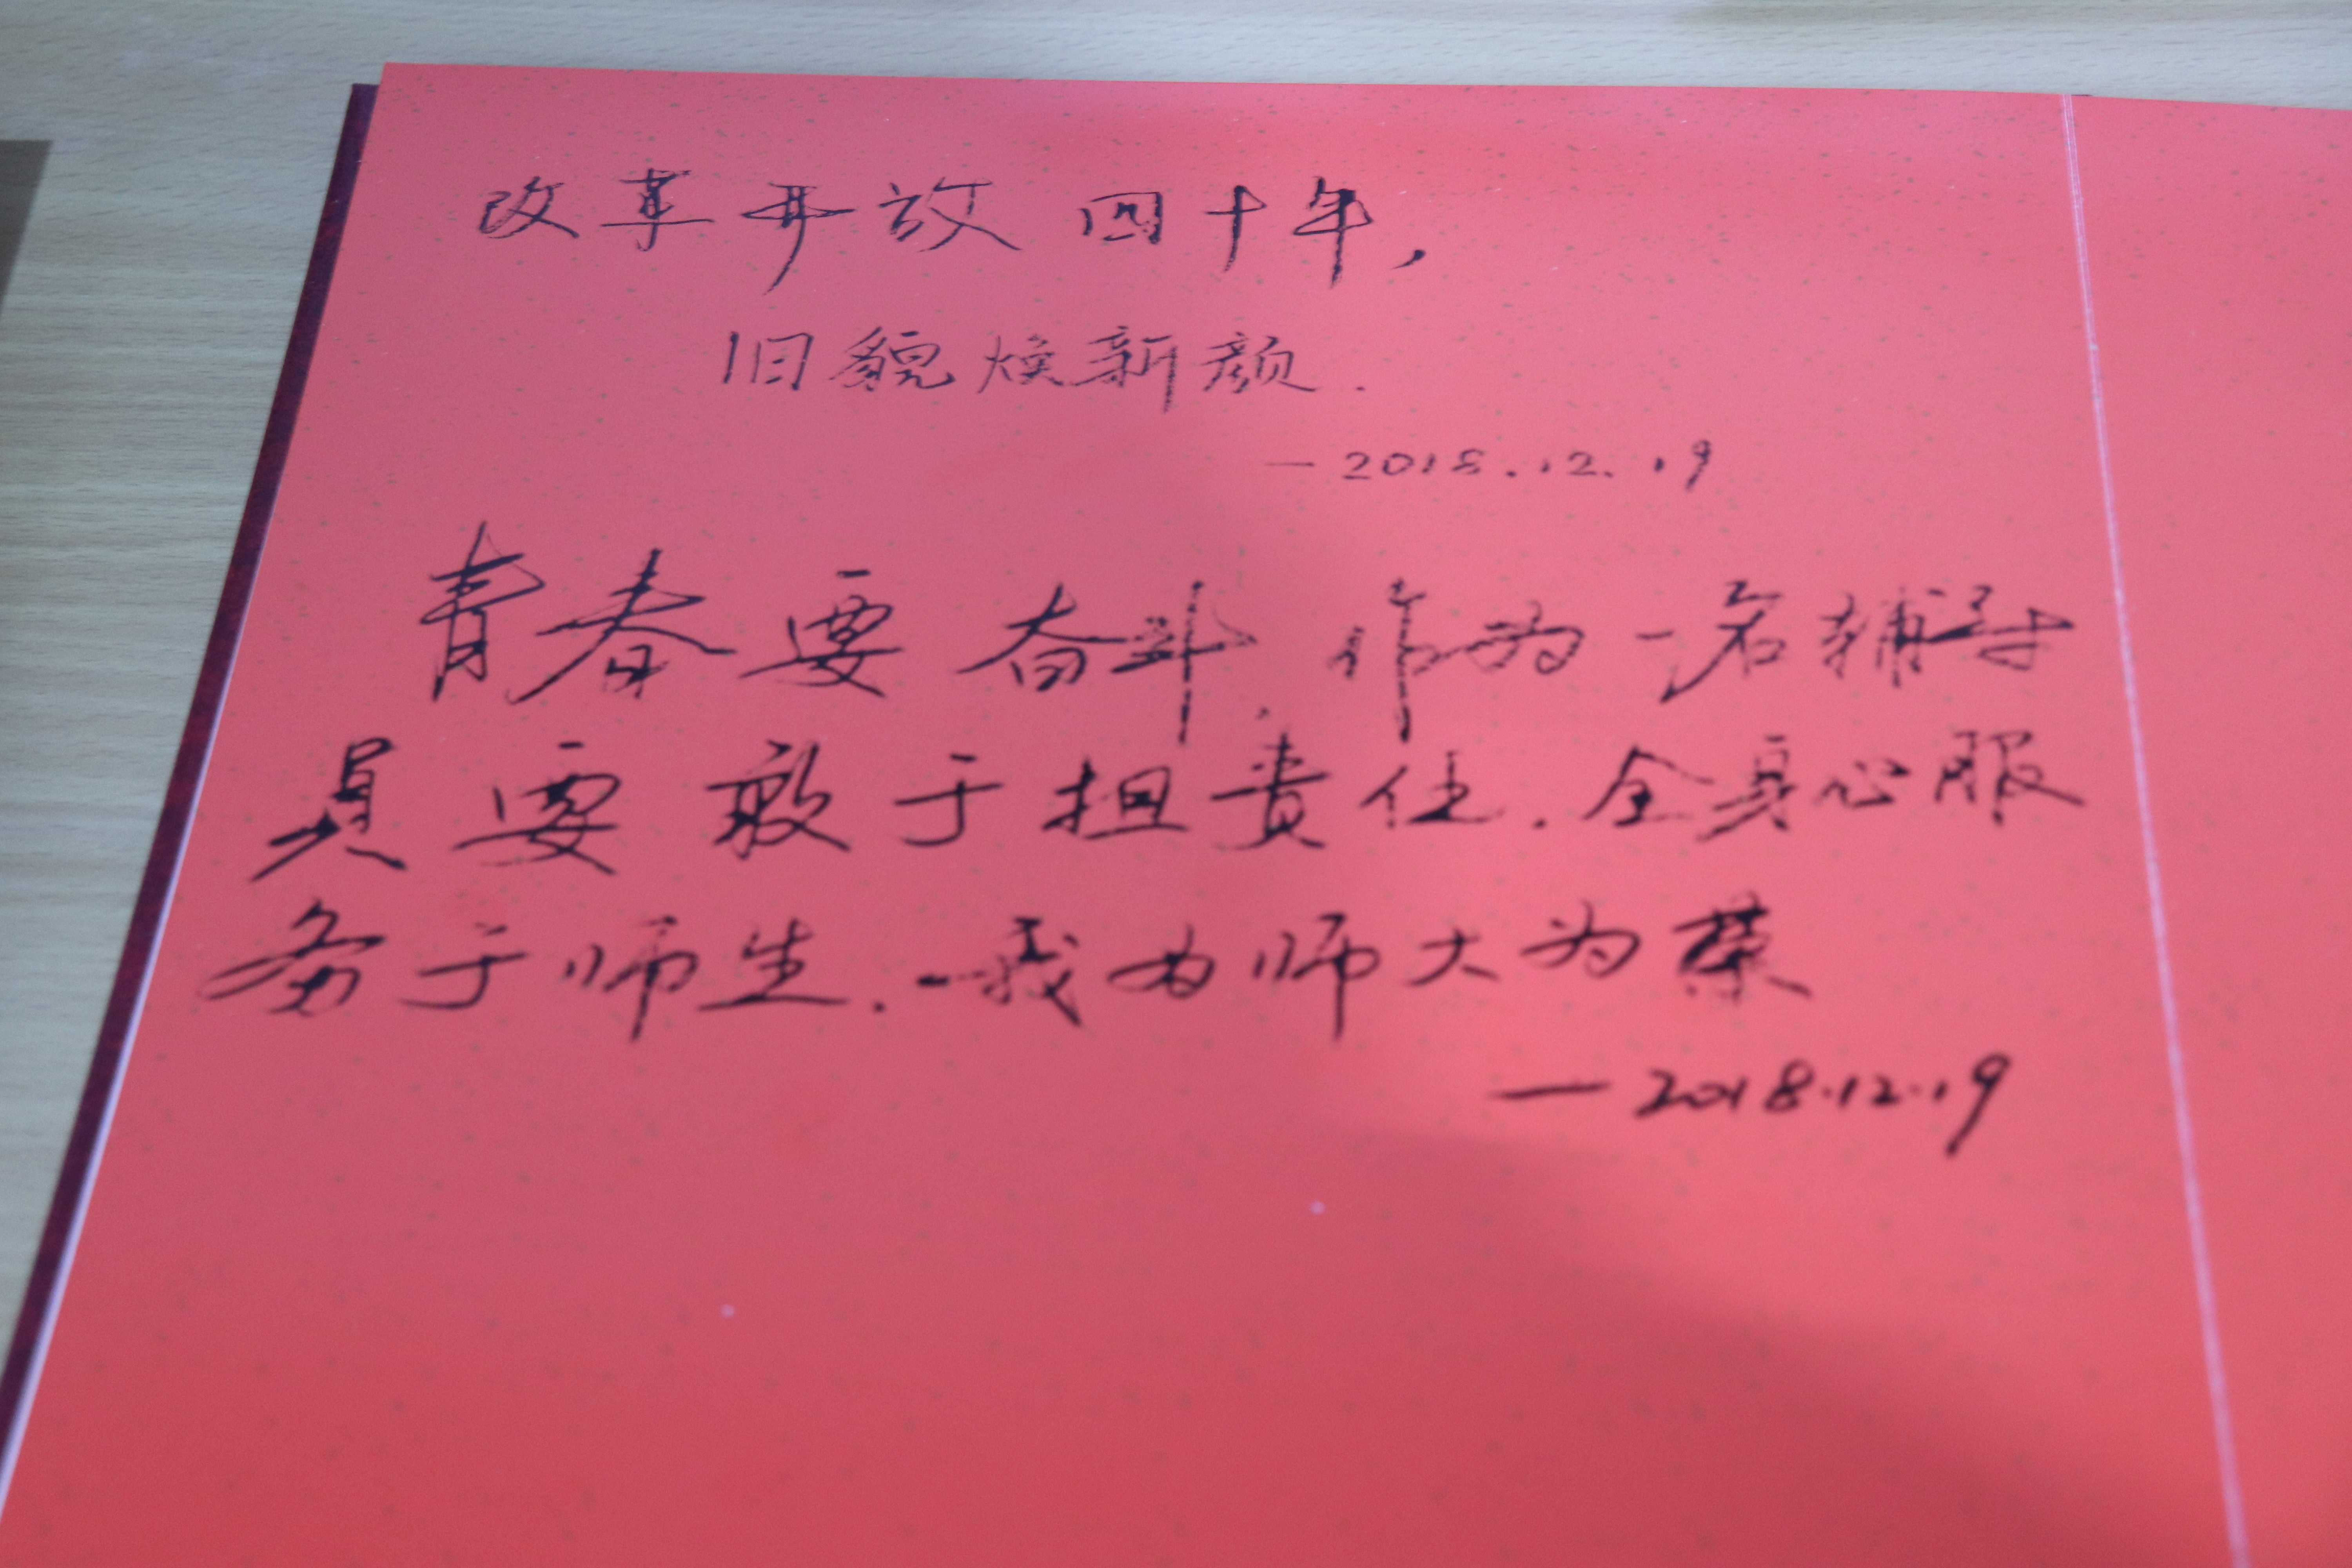 改革开放四十年,
旧貌焕新颜.
—2018.12.19
青春要奋斗,作为一名辅导
员要敢于担责任.全身心服
务于师生.-我为师大为荣
—2018.12.19